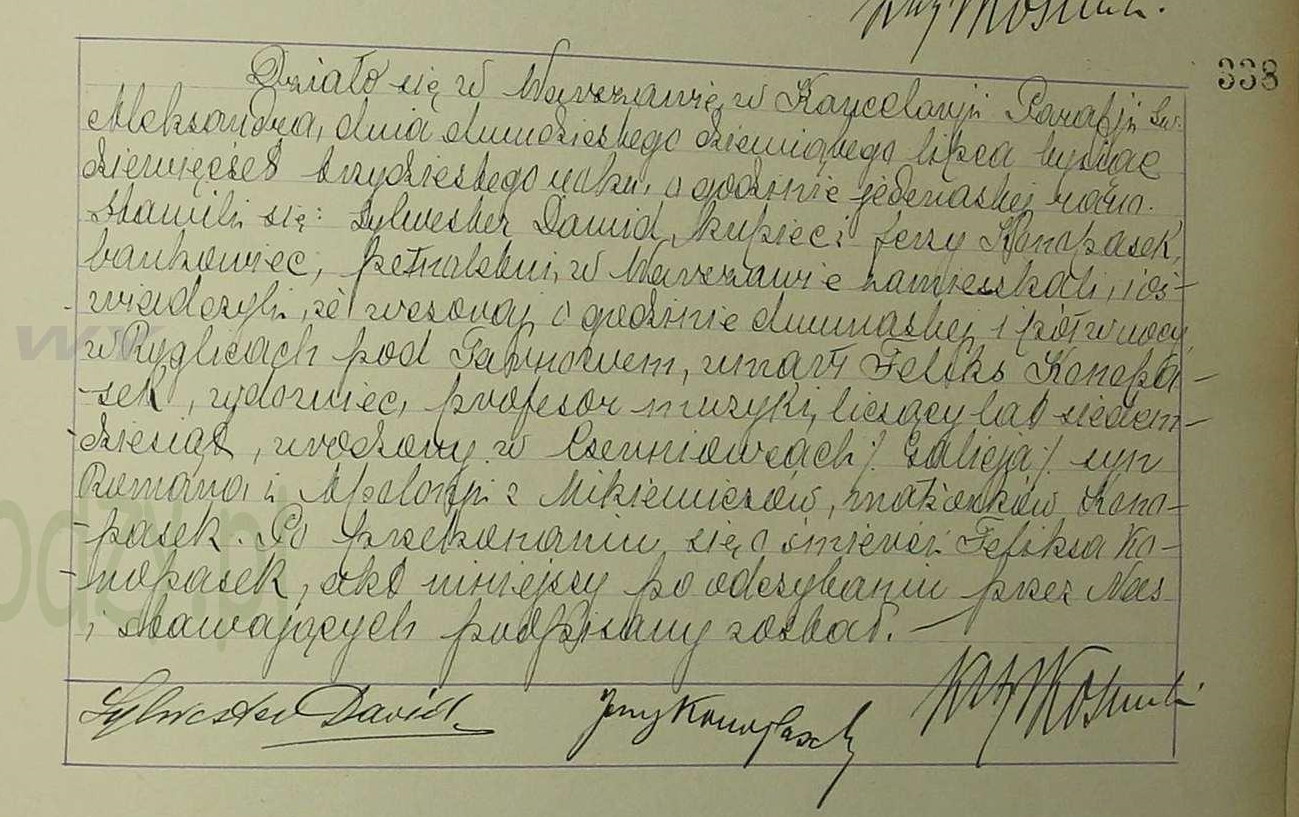 338
Działo się w Warszawie, w Kancelaryji Parafji Św.
Aleksandra, dnia dwudziestego dziewiątego lipca tysiąc
dziewięćset trzydziestego roku, o godzinie jedenastej rano.
Stawili się: Sylwester Dawid, kupiec i Jerzy Konopasek,
bankowiec, pełnoletni, w Warszawie zamieszkali, i oś-
wiadczyli, że wczoraj o godzinie dwunastej i pół w nocy,
w Ryglicach pod Tarnowem, umarł Feliks Konopa-
sek, wdowiec, profesor muzyki, liczący lat siedem-
dziesiąt, urodzony w Czerniowcach /Galicja/ syn
Romana i Apolonji z Mikiewiczów, małżonków Kono-
pasek. Po przekonaniu się o śmierci Feliksa Ko-
nopasek, akt niniejszy po odczytaniu przez Nas
i stawających podpisany został. —
Sylwester Dawid
Jerzy Konopasek